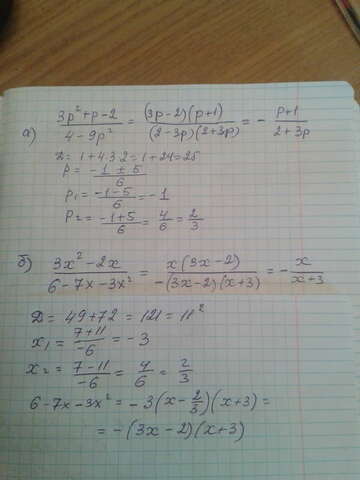 а) (3p²+p-2)/(4-9p²) = ((3p-2)(p+1))/((2-3p)(2+3p)) = - (p+1)/(2+3p)
D = 1+4·3·2=1+24=25
p = (-1 ± 5)/6
p₁ = (-1-5)/6 = -1
p₂ = (-1+5)/6 = 4/6 = 2/3
б) (3x²-2x)/(6-7x-3x²) = (x(3x-2))/(-(3x-2)(x+3)) = - x/(x+3)
D = 49+72 = 121 = 11²
x₁ = (7+11)/-6 = -3
x₂ = (7-11)/-6 = 4/6 = 2/3
6-7x-3x² = -3(x-2/3)(x+3) =
= -(3x-2)(x+3)